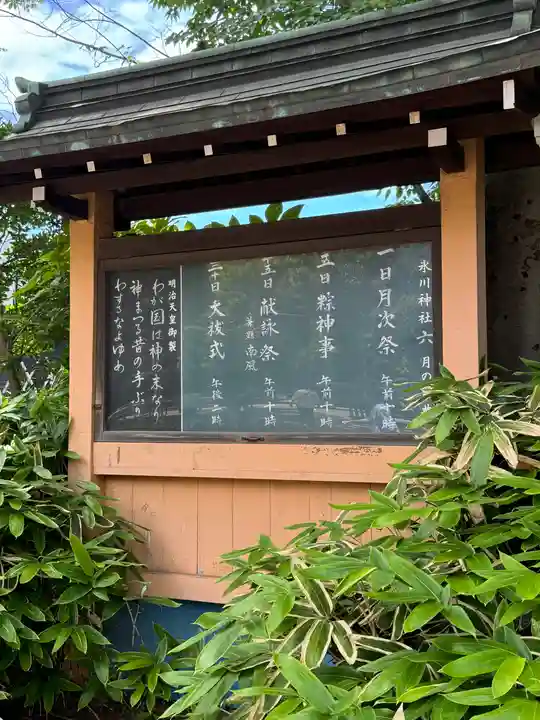 氷川神社 六月の
一日 月次祭 午前十時
五日 粽神事 午前十時
十五日 献詠祭 午前十時
兼題 南風
三十日 大祓式 午後二時
明治天皇御製
わが国は神の末なり
神まつる昔の手ぶり
わするなよゆめ